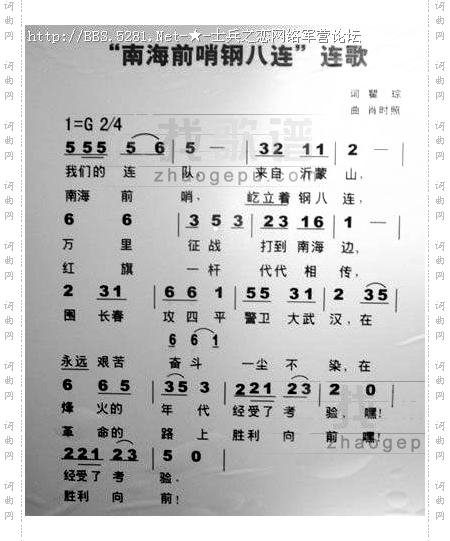 http://BBS.5281.Net-★-士兵之恋网络军营论坛
“南海前哨钢八连”连歌
词 瞿 琮
曲 肖时照
1=G 2/4
5 55 5 6 | 5 — | 32 11 | 2 — |
我们的 连 队, 来自 沂蒙 山,
南海 前 哨, 屹立着 钢 八 连,
6 6 | 3 5 3 | 23 16 | 1 — |
万 里 征 战 打到 南海 边,
红 旗 一 杆 代代 相 传,
2 31 | 6 6 1 | 55 31 | 2 35 |
围 长春 攻 四 平 警卫 大武 汉, 在
6 6 1
永远 艰苦 奋 斗 一尘 不 染, 在
6 6 5 | 35 3 | 221 23 | 2 0 |
烽 火的 年 代 经受了 考 验, 嘿!
革 命的 路 上 胜利 向 前 嘿!
221 23 | 5 0 |
经受了 考 验.
胜利 向 前!
找歌谱
zhaogepu.com
zhaogepu
词曲网